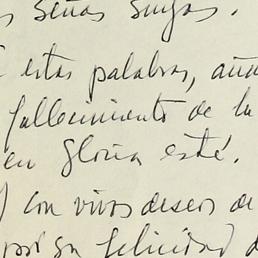 señas suyas.
estas palabras,
fallecimiento de la
en gloria esté.
con vivos deseos de
por su felicidad